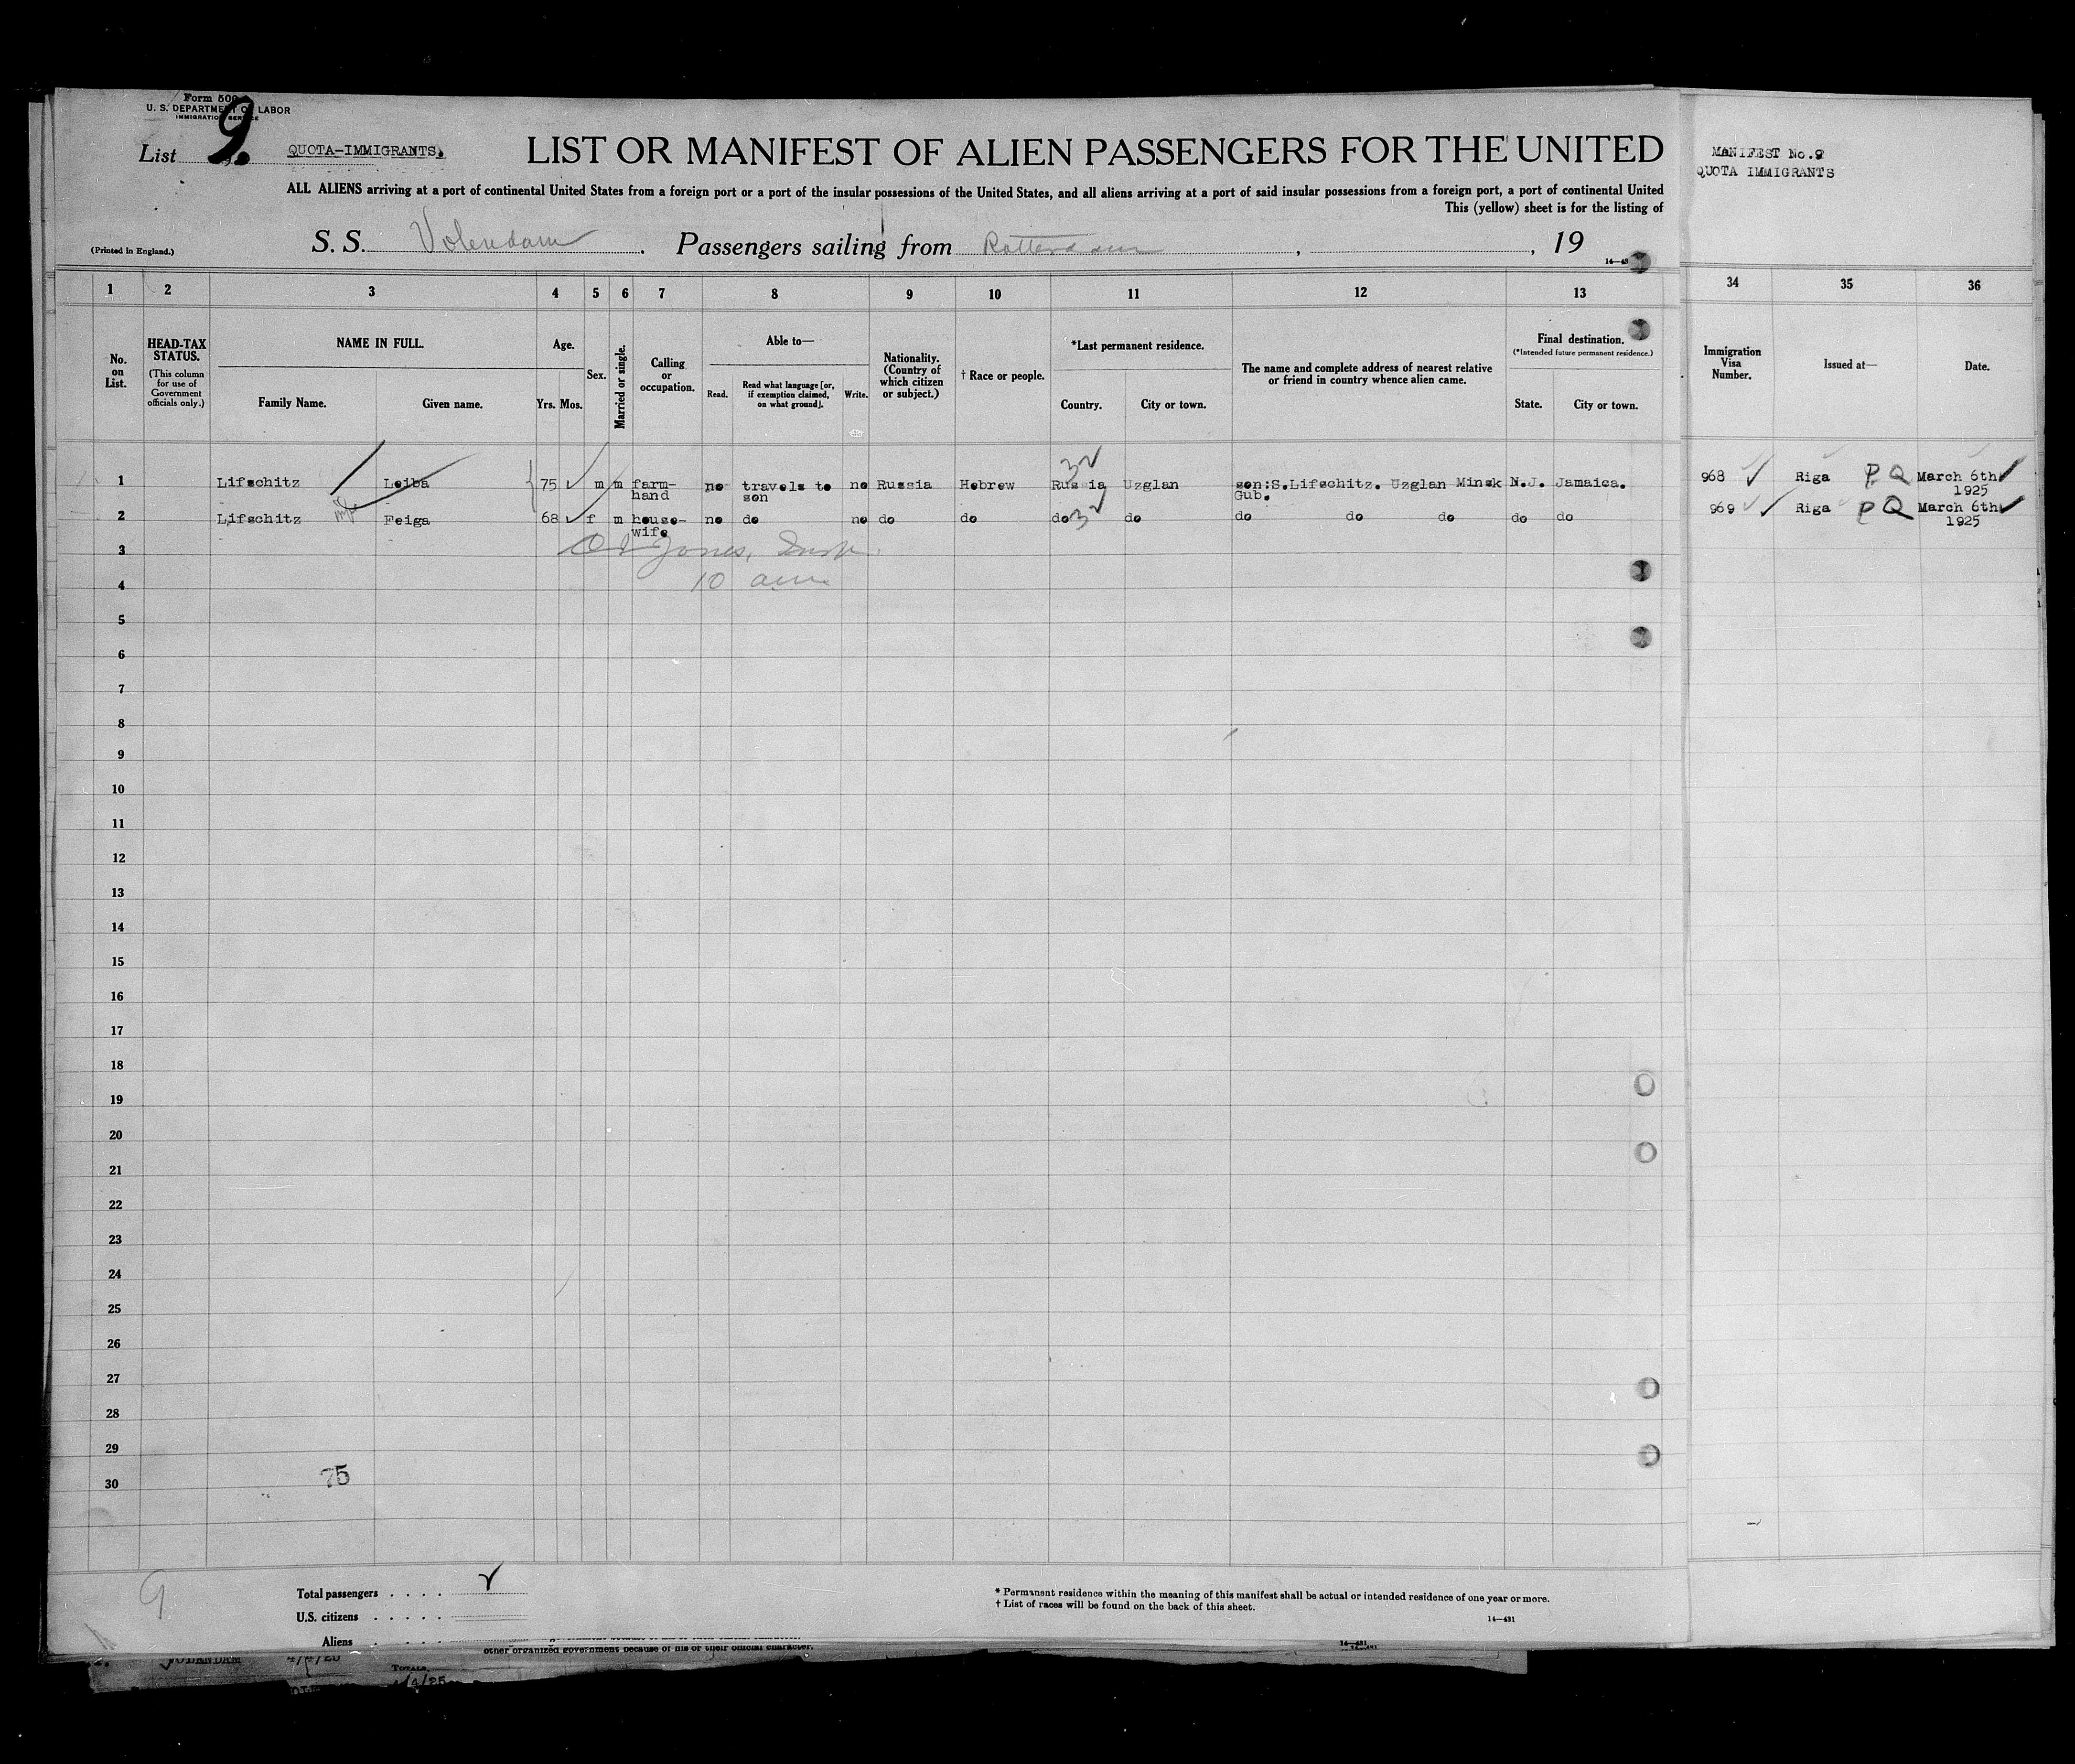 Form 500
U. S. DEPARTMENT OF LABOR
IMMIGRATION SERVICE
List 9. QUOTA-IMMIGRANTS.
LIST OR MANIFEST OF ALIEN PASSENGERS FOR THE UNITED
MANIFEST No.9
QUOTA IMMIGRANTS
ALL ALIENS arriving at a port of continental United States from a foreign port or a port of the insular possessions of the United States, and all aliens arriving at a port of said insular possessions from a foreign port, a port of continental United
This (yellow) sheet is for the listing of
(Printed in England.) S. S. Volendam . Passengers sailing from Rotterdam , , 19
1 2 3 4 5 6 7 8 9 10 11 12 13 34 35 36
No. on List.
HEAD-TAX STATUS. (This column for use of Government officials only.)
NAME IN FULL.
Family Name. Given name.
Age.
Yrs. Mos.
Sex.
Married or single.
Calling or occupation.
Able to—
Read. Read what language [or, if exemption claimed, on what ground]. Write.
Nationality. (Country of which citizen or subject.)
† Race or people.
*Last permanent residence.
Country. City or town.
The name and complete address of nearest relative or friend in country whence alien came.
Final destination.
(*Intended future permanent residence.)
State. City or town.
Immigration Visa Number.
Issued at—
Date.
1 Lifschitz Leiba 75 m m farm- no travels to no Russia Hebrew Russia Uzglan son:S.Lifschitz. Uzglan Minsk N.J. Jamaica. 968 Riga P Q March 6th
hand son Gub. 1925
2 Lifschitz wife Feiga 68 f m house- no do no do do do do do do do do do 969 Riga P Q March 6th
wife 1925
3 Jones, Insp.
4 10 am
5
6
7
8
9
10
11
12
13
14
15
16
17
18
19
20
21
22
23
24
25
26
27
28
29
75
30
9
Total passengers . . . .
U.S. citizens . . . . .
Aliens
* Permanent residence within the meaning of this manifest shall be actual or intended residence of one year or more.
† List of races will be found on the back of this sheet.
14—431
other organized government because of his or their official character.
VOLENDAM 4/4/25
TOTALS.
4/4/25